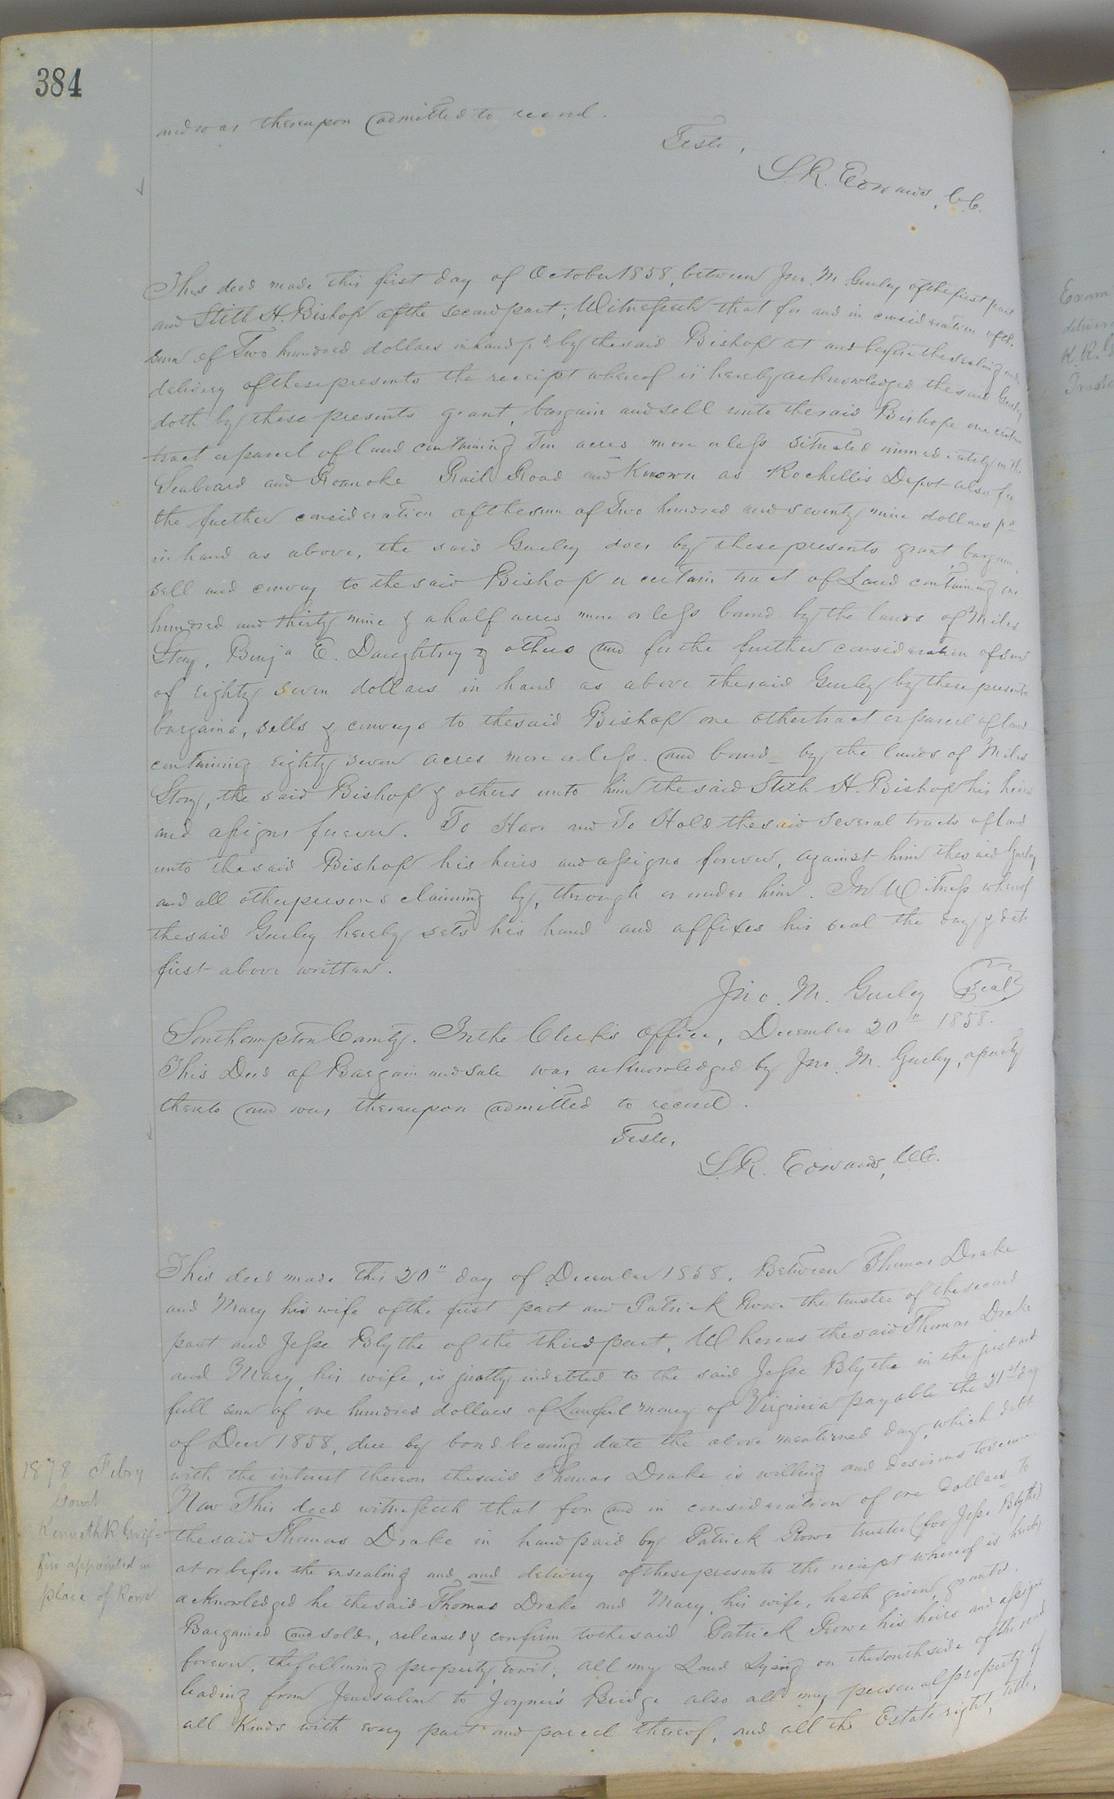 384
and was thereupon admitted to record.
Teste,
L.R. Edwards, C.C.
This deed made this first day of October 1858, between Jno. M. Gurley of the first part
and Stith H. Bishop of the second part; Witnesseth that for and in consideration of the
sum of Two hundred dollars in hand pd. by the said Bishop at and before the sealing and
delivery of these presents the receipt whereof is hereby acknowledged the said Gurley
doth by these presents grant, bargain and sell unto the said Bishop one certain
tract or parcel of land containing Ten acres more or less situated immediately on the
Seaboard and Roanoke Rail Road and Known as Rochelle's Depot also for
the further consideration of the sum of Two hundred and seventy nine dollars pd
in hand as above, the said Gurley does by these presents grant, bargain,
sell and convey to the said Bishop a certain tract of Land containing one
hundred and thirty nine & a half acres more or less bound by the lands of Miles
Story, Benja E. Daughtrey & others and for the further consideration of sum
of eighty seven dollars in hand as above the said Gurley by these presents
bargains, sells & conveys to the said Bishop one other tract or parcel of land
containing eighty seven acres more or less and bound by the lands of Miles
Story, the said Bishop & others unto him the said Stith H. Bishop his heirs
and assigns forever. To Have and To Hold the said several tracts of land
unto the said Bishop his heirs and assigns forever, against him the said Gurley
and all other persons claiming by, through or under him. In Witness whereof
the said Gurley hereby sets his hand and affixes his seal the day & date
first above written.
Jno. M. Gurley Seal
Southampton County. In the Clerk's Office, December 20th 1858.
This Deed of Bargain and sale was acknowledged by Jno. M. Gurley, a party
thereto and was thereupon admitted to record.
Teste,
L.R. Edwards, C.C.
This deed made this 20th day of December 1858, Between Thomas Drake
and Mary his wife of the first part and Patrick Rowe the trustee of the second
part and Jesse Blythe of the third part, Whereas the said Thomas Drake
and Mary, his wife, is justly indebted to the said Jesse Blythe in the just and
full sum of one hundred dollars of Lawful money of Virginia payable the 31st day
of Decr 1858, due by bond bearing date the above mentioned day, which debt
with the interest thereon the said Thomas Drake is willing and desirous to secure
Now This deed witnesseth that for and in consideration of one dollars to
the said Thomas Drake in hand paid by Patrick Rowe trustee (for Jesse Blythe)
at or before the ensealing and and delivery of these presents the receipt whereof is hereby
acknowledged he the said Thomas Drake and Mary, his wife, hath given, granted,
Bargained and sold, released & confirm to the said Patrick Rowe his heirs and assigns
forever, the following property, towit, all my Land Lying on the South side of the road
leading from Jerusalem to Joyner's Bridge also all my personal property of
all Kinds with every part and parcel thereof, and all the Estate right, title,
1878 Febry
Court
Kenneth R Griffin appointed in
place of Rowe
Exam
deliver
K.R. G
Trustee